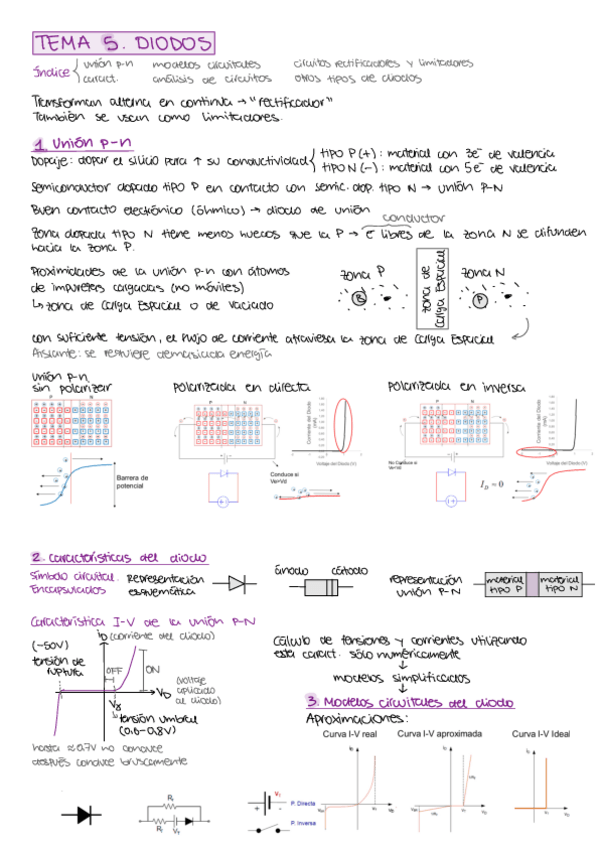 TEMA 5. DIODOS
Índice
unión p-n modelos circuitales circuitos rectificadores y limitadores
caract. análisis de circuitos otros tipos de diodos
Transforman alterna en continua → "rectificador"
También se usan como limitadores.
1. Unión p-n
Dopaje: dopar el silicio para ↑ su conductividad
tipo P(+): material con 3e⁻ de valencia
tipo N(-): material con 5e⁻ de valencia
Semiconductor dopado tipo P en contacto con semic. dop. tipo N → unión P-N
Buen contacto electrónico (óhmico) → diodo de unión
conductor
Zona dopada tipo N tiene menos huecos que la P → e⁻ libres de la zona N se difunden
hacia la zona P.
Proximidades de la unión p-n con átomos
de impurezas cargadas (no móviles)
↳ zona de carga espacial o de vaciado
zona P
B
zona de
carga espacial
zona N
P
con suficiente tensión, el flujo de corriente atraviesa la zona de carga espacial
Aislante: se requiere demasiada energía
unión p-n
sin polarizar
Polarizada en directa
Polarizada en inversa
P N
P N
P N
Corriente del Diodo
Voltaje del Diodo (V)
Corriente del Diodo
Voltaje del Diodo (V)
Barrera de
potencial
Conduce si
Ve=Vd
No Conduce si
I_D ≈ 0
2. Características del diodo
Símbolo circuital.
Encapsulados
Representación
esquemática
ánodo cátodo
representación
unión P-N
material
tipo P
material
tipo N
Característica I-V de la unión P-N
i_D (corriente del diodo)
(-50V)
tensión de
ruptura
OFF
ON
V_D
(voltaje
aplicado
al diodo)
Vγ
tensión umbral
(0,6-0,8V)
hasta ≈0.7V no conduce
después conduce bruscamente
Cálculo de tensiones y corrientes utilizando
esta caract. sólo numéricamente
↓
modelos simplificados
↓
3. Modelos circuitales del diodo
Aproximaciones:
Curva I-V real
Curva I-V aproximada
Curva I-V Ideal
P. Directa
P. Inversa